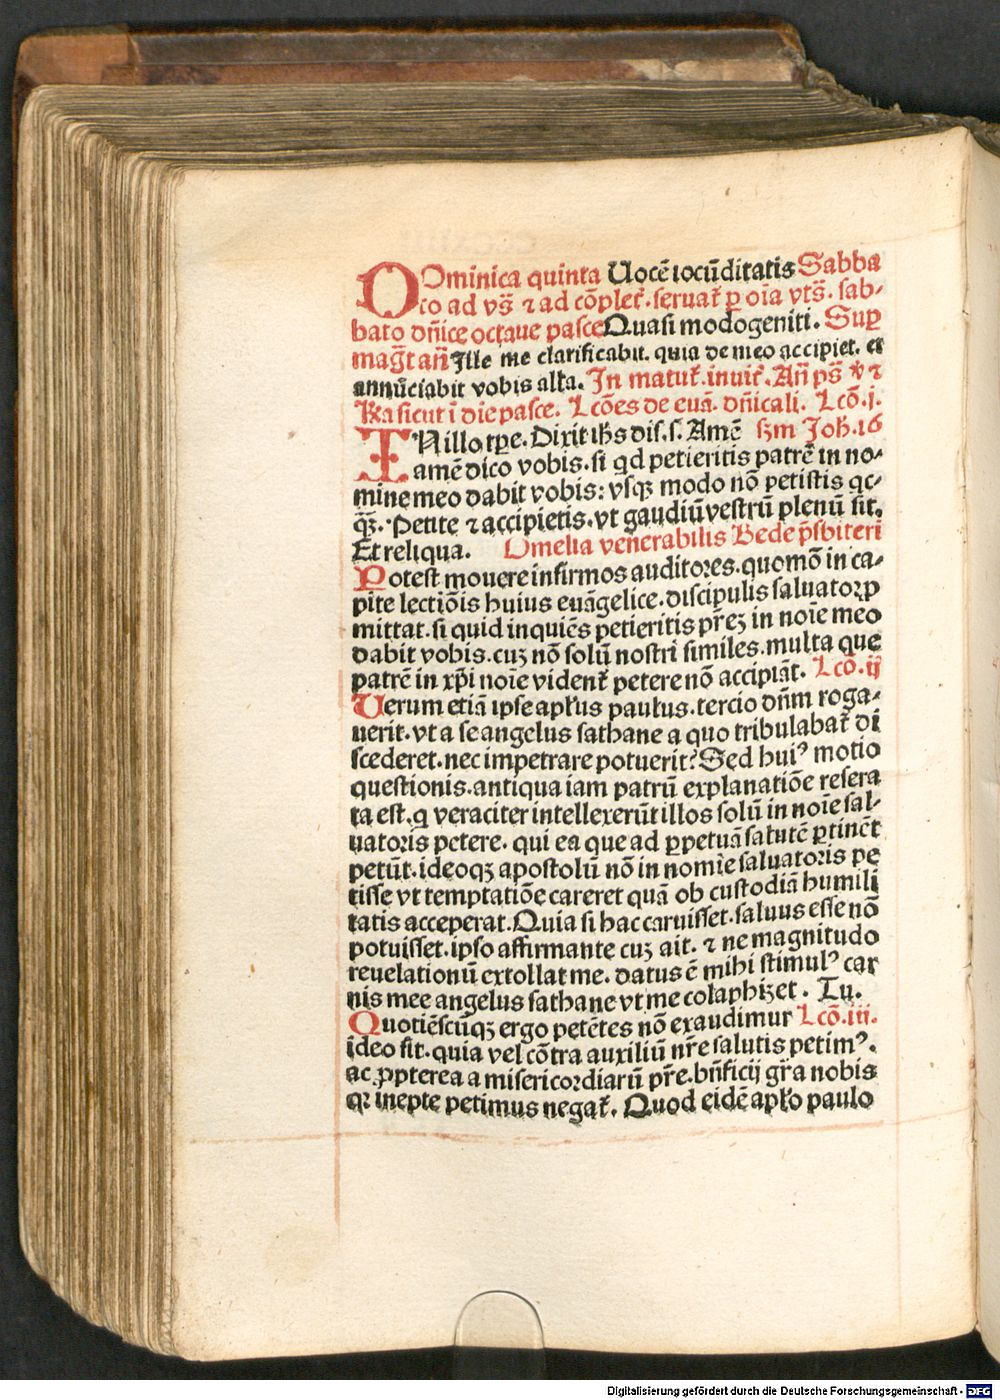 DOminica quinta Uocē iocūditatis Sabba
to ad vs̄ ⁊ ad cōplet̄. seruat̄ p oīa vts̄. sab-
bato dn̄ice octaue pasce Quasi modogeniti. Sup
magt̄ an̄ Ille me clarificabit. quia de meo accipiet. et
annūciabit vobis alła. In matut̄. inuit̄. An̄ ps̄ ꝟ ⁊
Ra sicut ī die pasce. Lcōes de euā. dn̄icali. Lcō. j.
IN illo tp̄e. Dixit ihs dis. s. Amē sꝫm Joh̄. 16
amē dico vobis. si qd petieritis patrē in no-
mine meo dabit vobis: vsqꝫ modo nō petistis qc-
qꝫ̄. Petite ⁊ accipietis. vt gaudiū vestrū plenū sit.
Et reliqua. Omelia venerabilis Bede p̄sbiteri
Potest mouere infirmos auditores. quomō in ca-
pite lectiōis huius euāgelice. discipulis saluator ꝓ
mittat. si quid inquiēs petieritis pr̄eꝫ in noīe meo
dabit vobis. cuꝫ nō solū nostri similes. multa que
patrē in xp̄i noīe vident̄ petere nō accipiāt. Lcō. ij
Uerum etiā ipse apłus paułus. tercio dn̄m roga-
uerit. vt a se angelus sathane a quo tribulabat̄ di
scederet. nec impetrare potuerit? Sed huiꝰ motio
questionis. antiqua iam patrū explanatiōe resera
ta est. q veraciter intellexerūt illos solū in noīe sal-
uatoris petere. qui ea que ad ꝑpetuā salutē ꝑtinēt
petūt. ideoqꝫ apostolū nō in nomīe saluatoris pe
tisse vt temptatiōe careret quā ob custodiā humili
tatis acceperat. Quia si hac caruisset. saluus esse nō
potuisset. ipso affirmante cuꝫ ait. ⁊ ne magnitudo
reuelationū extollat me. datus ē mihi stimulꝰ car
nis mee angelus sathane vt me colaphizet. Tu.
Quotiēscūqꝫ ergo petētes nō exaudimur Lcō. iii.
ideo fit. quia vel cōtra auxiliū nr̄e salutis petimꝰ.
ac ꝓpterea a misericordiarū pr̄e. bn̄ficij gr̄a nobis
qꝛ inepte petimus negat̄. Quod eidē apło paulo
Digitalisierung gefördert durch die Deutsche Forschungsgemeinschaft - DFG